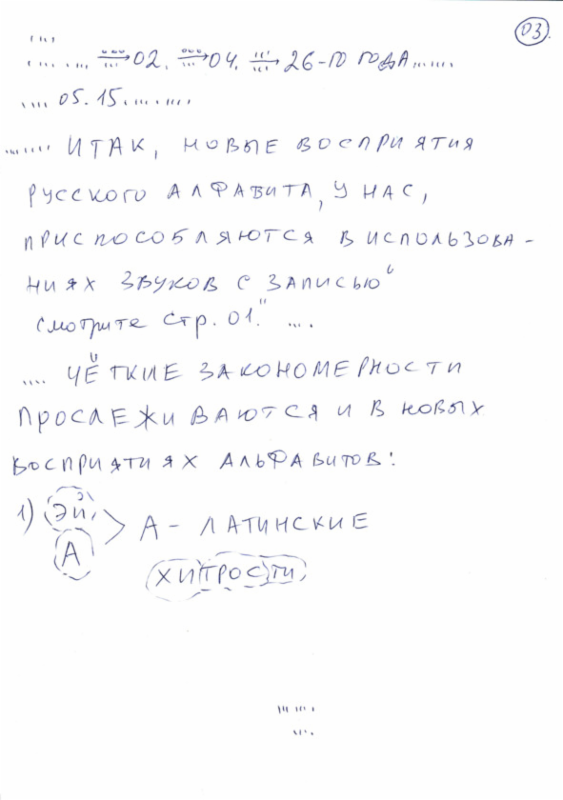 03.
.... ..... ⇒ 02. ⇒ 04. ⇒ 26-ГО ГОДА......
.... 05.15.........
....... ИТАК, НОВЫЕ ВОСПРИЯТИЯ
РУССКОГО АЛФАВИТА, У НАС,
ПРИСПОСОБЛЯЮТСЯ В ИСПОЛЬЗОВА-
НИЯХ ЗВУКОВ С ЗАПИСЬЮ "
СМОТРИТЕ СТР. 01." ....
.... ЧЁТКИЕ ЗАКОНОМЕРНОСТИ
ПРОСЛЕЖИВАЮТСЯ И В НОВЫХ
ВОСПРИЯТИЯХ АЛЬФАВИТОВ:
1) ЭЙ,
А > А - ЛАТИНСКИЕ
ХИТРОСТИ